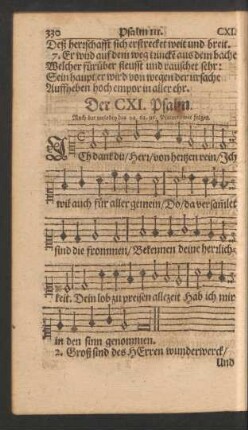 330 Psalm 111. CXI.
Deß herrschafft sich erstrecket weit und breit.
7. Er wird auf dem weg trincke aus dem bache
Welcher fürüber fleusst und rauschet sehr:
Sein haupt er wird von wegen der ursache
Auffheben hoch empor in aller ehr.
Der CXI. Psalm.
Nach der melodey des 24. 62. 95.
ICh danck dir / Herr / von hertzen rein / Ich
wil auch für aller gemein / Do / da versamlet
sind die frommen / Bekennen deine herrlich-
keit. Dein lob zu preisen allezeit Hab ich mir
in den sinn genommen.
2. Groß sind des HErren wunderwerck /
Und